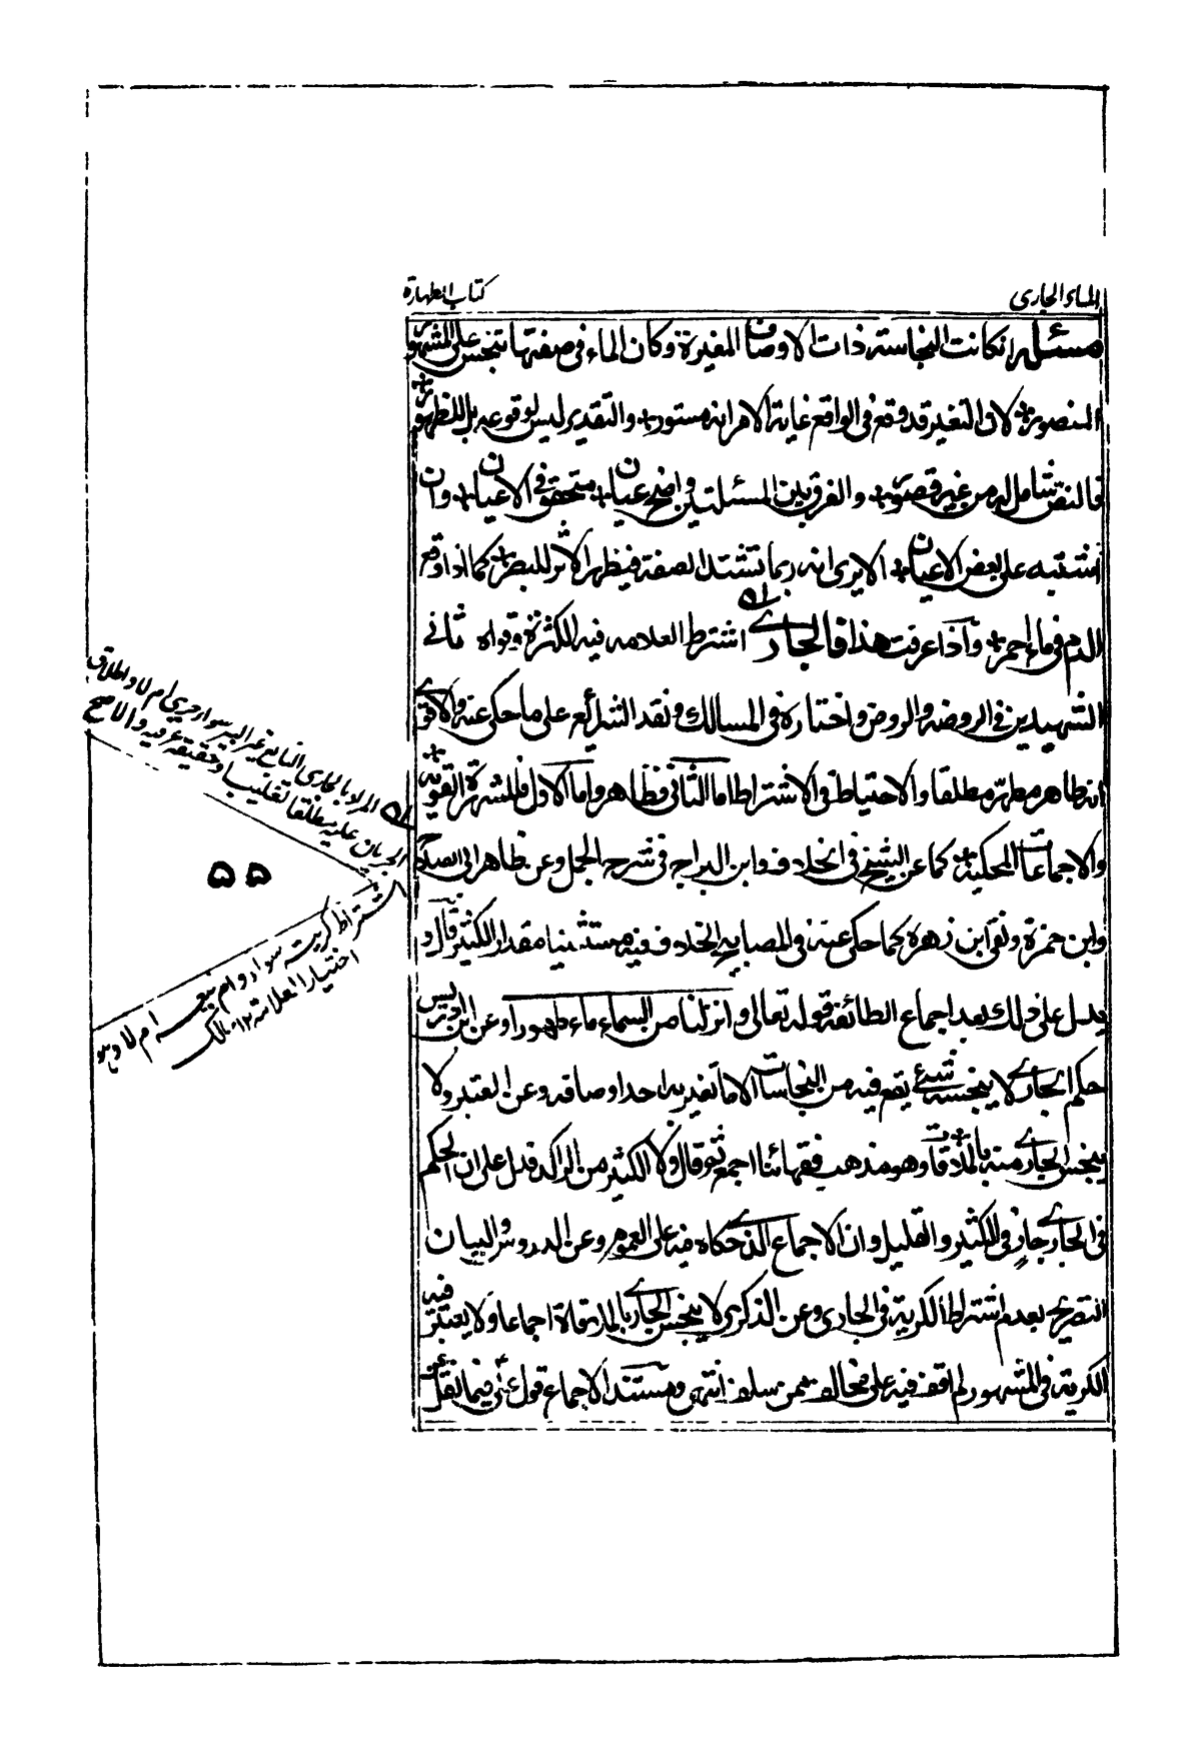 الماء الجاري
كتاب الطهارة
مسئلة انكانت النجاسة ذات الاوصاف المغيرة وكان الماء في صفتها تنجس على المشهور
المنصور لان التغير قد وقع في الواقع غاية الامر انه مستور والتقدير ليس لوقوعه بل للظهور
فالنص شامل له من غير قصور والفرق بين المسئلتين واضح عيان متحقق في الاعيان وان
اشتبه على بعض الاعيان الا يرى انه ربما تشتد الصفة فيظهر الاثر للبصر كما اذا وقع
الدم في ماء احمر واذا عرفت هذا فالجاري اشترط العلامه فيه الكثرة وقواه ثاني
الشهيدين في الروضه والروض واختاره في المسالك ونقد الشرائع على ما حكى عنه والاقوى
انه طاهر مطهر مطلقا والاحتياط في الاشتراط اما الثاني فظاهر واما الاول فللشهرة القوية
والاجماعات المحكية كما عن الشيخ في الخلاف وابن البراج في شرح الجمل وعن ظاهر ابي الصلاح
وابن حمزة ونقى ابن زهرة كما حكى عنه في المصابيح الخلاف فيه مستثنيا مقدار الكثير قال و
يدل على ذلك بعد اجماع الطائفة قوله تعالى وانزلنا من السماء ماء طهورا وعن ابن ادريس
حكم الجاري لا ينجسه شيء يقع فيه من النجاسات الا ما تغير به احد اوصافه وعن المعتبر ولا
ينجس الجاري منه بالملاقات وهو مذهب فقهائنا اجمع ثم قال ولا الكثير من الراكد فدل على ان الحكم
في الجاري جار في الكثير والقليل وان الاجماع الذي حكاه فيه على العموم وعن الدروس والبيان
التصريح بعدم اشتراط الكرية في الجاري وعن الذكرى لا ينجس الجاري بالملاقاة اجماعا ولا يعتبر فيه
الكرية في المشهور لم اقف فيه على مخالف ممن سلف انتهى ومستند الاجماع قول علي فيما نقل عن
المراد بالجاري النابع غير البئر سواء جرى ام لا واطلاق
الجريان عليه مطلقا تغليبا وحقيقة عرفيه والاصح
اشتراط كريته سواء دام نبعه ام لا وهو
اختيار العلامة ١٢ مسالك
٥٥